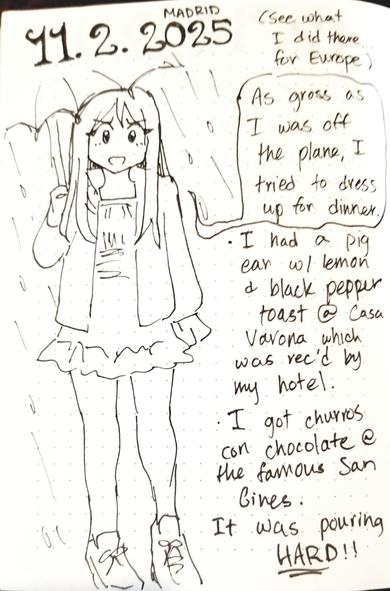 MADRID
11.2.2025
(See what
I did there...
for Europe)
As gross as
I was off
the plane, I
tried to dress
up for dinner.
· I had a pig
ear w/ lemon
& black pepper
toast @ Casa
Varona which
was rec'd by
my hotel.
· I got churros
con chocolate @
the famous San
Gines.
It was pouring
HARD!!